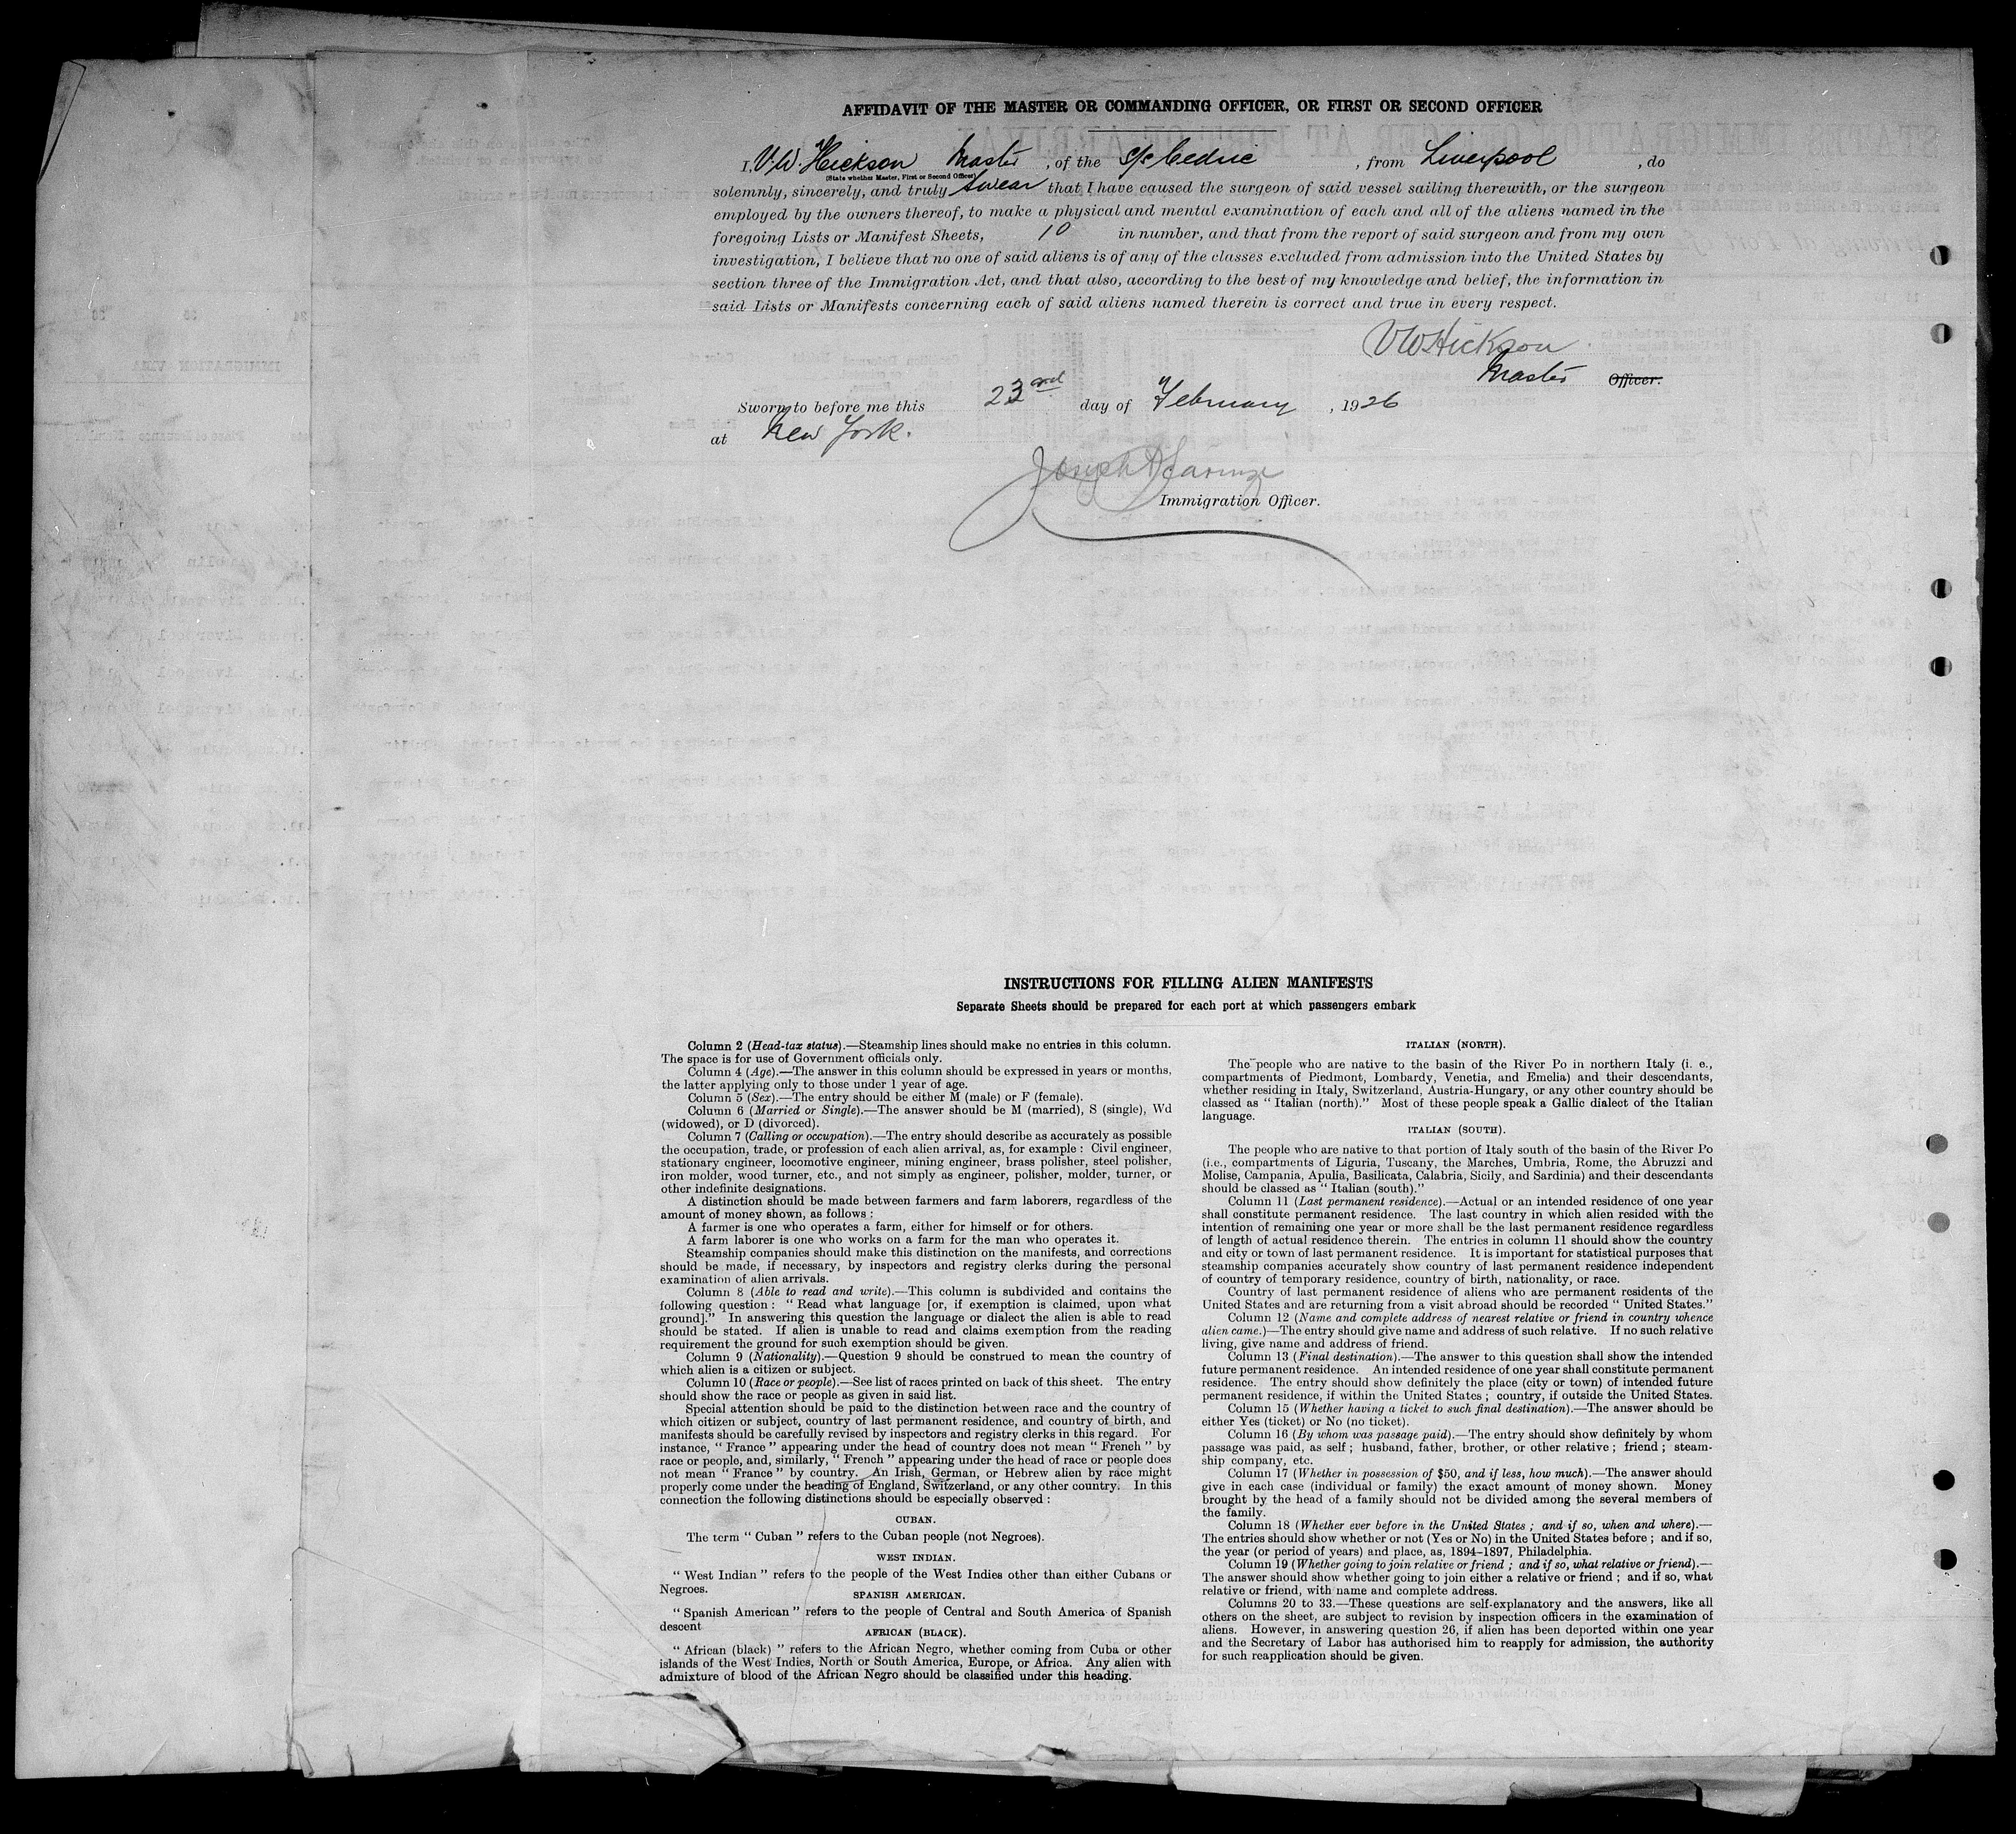 AFFIDAVIT OF THE MASTER OR COMMANDING OFFICER, OR FIRST OR SECOND OFFICER
I, V. W. Hickson Master, of the S/S Cedric, from Liverpool, do
(State whether Master, First or Second Officer)
solemnly, sincerely, and truly swear that I have caused the surgeon of said vessel sailing therewith, or the surgeon
employed by the owners thereof, to make a physical and mental examination of each and all of the aliens named in the
foregoing Lists or Manifest Sheets, 10 in number, and that from the report of said surgeon and from my own
investigation, I believe that no one of said aliens is of any of the classes excluded from admission into the United States by
section three of the Immigration Act, and that also, according to the best of my knowledge and belief, the information in
said Lists or Manifests concerning each of said aliens named therein is correct and true in every respect.
VW Hickson
Master Officer.
Sworn to before me this 23rd day of February, 1926
at New York.
Joseph
Immigration Officer.
INSTRUCTIONS FOR FILLING ALIEN MANIFESTS
Separate Sheets should be prepared for each port at which passengers embark
Column 2 (Head-tax status).—Steamship lines should make no entries in this column.
The space is for use of Government officials only.
Column 4 (Age).—The answer in this column should be expressed in years or months,
the latter applying only to those under 1 year of age.
Column 5 (Sex).—The entry should be either M (male) or F (female).
Column 6 (Married or Single).—The answer should be M (married), S (single), Wd
(widowed), or D (divorced).
Column 7 (Calling or occupation).—The entry should describe as accurately as possible
the occupation, trade, or profession of each alien arrival, as, for example : Civil engineer,
stationary engineer, locomotive engineer, mining engineer, brass polisher, steel polisher,
iron molder, wood turner, etc., and not simply as engineer, polisher, molder, turner, or
other indefinite designations.
A distinction should be made between farmers and farm laborers, regardless of the
amount of money shown, as follows :
A farmer is one who operates a farm, either for himself or for others.
A farm laborer is one who works on a farm for the man who operates it.
Steamship companies should make this distinction on the manifests, and corrections
should be made, if necessary, by inspectors and registry clerks during the personal
examination of alien arrivals.
Column 8 (Able to read and write).—This column is subdivided and contains the
following question : " Read what language [or, if exemption is claimed, upon what
ground]." In answering this question the language or dialect the alien is able to read
should be stated. If alien is unable to read and claims exemption from the reading
requirement the ground for such exemption should be given.
Column 9 (Nationality).—Question 9 should be construed to mean the country of
which alien is a citizen or subject.
Column 10 (Race or people).—See list of races printed on back of this sheet. The entry
should show the race or people as given in said list.
Special attention should be paid to the distinction between race and the country of
which citizen or subject, country of last permanent residence, and country of birth, and
manifests should be carefully revised by inspectors and registry clerks in this regard. For
instance, " France " appearing under the head of country does not mean " French " by
race or people, and, similarly, " French " appearing under the head of race or people does
not mean " France " by country. An Irish, German, or Hebrew alien by race might
properly come under the heading of England, Switzerland, or any other country. In this
connection the following distinctions should be especially observed :
CUBAN.
The term " Cuban " refers to the Cuban people (not Negroes).
WEST INDIAN.
" West Indian " refers to the people of the West Indies other than either Cubans or
Negroes.
SPANISH AMERICAN.
" Spanish American " refers to the people of Central and South America of Spanish
descent
AFRICAN (BLACK).
" African (black) " refers to the African Negro, whether coming from Cuba or other
islands of the West Indies, North or South America, Europe, or Africa. Any alien with
admixture of blood of the African Negro should be classified under this heading.
ITALIAN (NORTH).
The people who are native to the basin of the River Po in northern Italy (i. e.,
compartments of Piedmont, Lombardy, Venetia, and Emelia) and their descendants,
whether residing in Italy, Switzerland, Austria-Hungary, or any other country should be
classed as " Italian (north)." Most of these people speak a Gallic dialect of the Italian
language.
ITALIAN (SOUTH).
The people who are native to that portion of Italy south of the basin of the River Po
(i.e., compartments of Liguria, Tuscany, the Marches, Umbria, Rome, the Abruzzi and
Molise, Campania, Apulia, Basilicata, Calabria, Sicily, and Sardinia) and their descendants
should be classed as " Italian (south)."
Column 11 (Last permanent residence).—Actual or an intended residence of one year
shall constitute permanent residence. The last country in which alien resided with the
intention of remaining one year or more shall be the last permanent residence regardless
of length of actual residence therein. The entries in column 11 should show the country
and city or town of last permanent residence. It is important for statistical purposes that
steamship companies accurately show country of last permanent residence independent
of country of temporary residence, country of birth, nationality, or race.
Country of last permanent residence of aliens who are permanent residents of the
United States and are returning from a visit abroad should be recorded " United States."
Column 12 (Name and complete address of nearest relative or friend in country whence
alien came.)—The entry should give name and address of such relative. If no such relative
living, give name and address of friend.
Column 13 (Final destination).—The answer to this question shall show the intended
future permanent residence. An intended residence of one year shall constitute permanent
residence. The entry should show definitely the place (city or town) of intended future
permanent residence, if within the United States ; country, if outside the United States.
Column 15 (Whether having a ticket to such final destination).—The answer should be
either Yes (ticket) or No (no ticket).
Column 16 (By whom was passage paid).—The entry should show definitely by whom
passage was paid, as self ; husband, father, brother, or other relative ; friend ; steam-
ship company, etc.
Column 17 (Whether in possession of $50, and if less, how much).—The answer should
give in each case (individual or family) the exact amount of money shown. Money
brought by the head of a family should not be divided among the several members of
the family.
Column 18 (Whether ever before in the United States ; and if so, when and where).—
The entries should show whether or not (Yes or No) in the United States before ; and if so,
the year (or period of years) and place, as, 1894–1897, Philadelphia.
Column 19 (Whether going to join relative or friend ; and if so, what relative or friend).—
The answer should show whether going to join either a relative or friend ; and if so, what
relative or friend, with name and complete address.
Columns 20 to 33.—These questions are self-explanatory and the answers, like all
others on the sheet, are subject to revision by inspection officers in the examination of
aliens. However, in answering question 26, if alien has been deported within one year
and the Secretary of Labor has authorised him to reapply for admission, the authority
for such reapplication should be given.